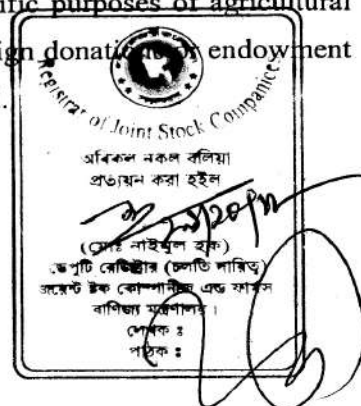 purposes of agricultural
donations or endowment
Registrar of Joint Stock Companies
অবিকল নকল বলিয়া
প্রত্যয়ন করা হইল
(মোঃ নাইমুল হক)
ডেপুটি রেজিষ্ট্রার (চলতি দায়িত্ব)
জয়েন্ট ষ্টক কোম্পানীজ এন্ড ফার্মস
বাণিজ্য মন্ত্রণালয়।
লেখক :
পাঠক :